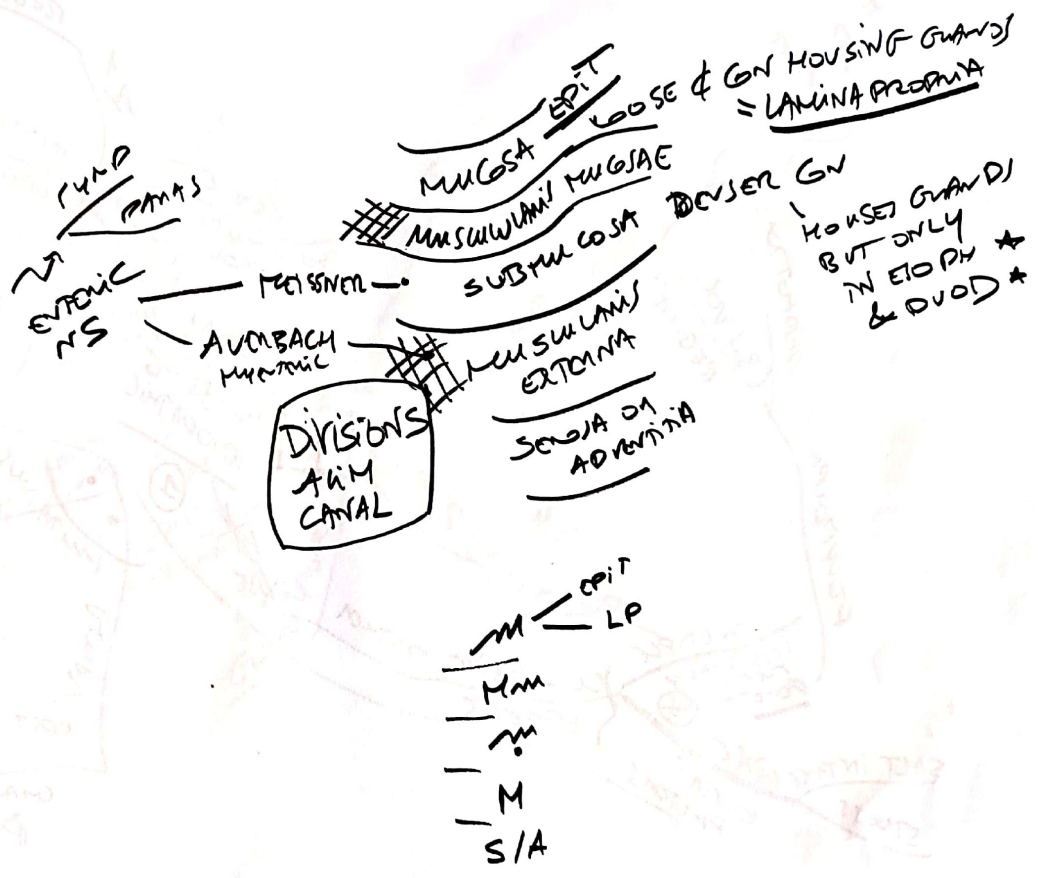 SYMP
PARAS
ENTERIC
NS
MEISSNER
AUERBACH
MYENTERIC
DIVISIONS
ALIM
CANAL
MUCOSA
EPIT
LOOSE ¢ CON HOUSING GLANDS
= LAMINA PROPRIA
MUSCULARIS MUCOSAE
SUBMUCOSA
DENSER CON
HOUSES GLANDS
BUT ONLY
IN ESOPH ★
& DUOD ★
MUSCULARIS
EXTERNA
SEROSA OR
ADVENTITIA
M
EPIT
LP
MM
M
M
S/A